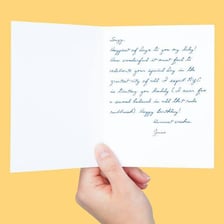 Suzy,
Happiest of days to you my lady!
How wonderful it must feel to
celebrate your special day in the
greatest city of all. I expect NYC
is treating you kindly & I ever for
a second believed in all that rude
Happy birthday!
Warmest wishes